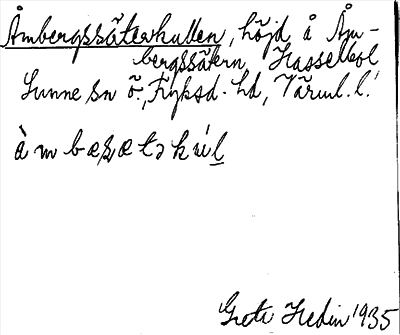 Åmbergssäterkullen, höjd å Åm-
bergssätern, Hasselbol
Sunne sn ö., Fryksd. hd, Värml. l.
å̀ m b æ ʂ æ t ə k ú l
Greta Hedin 1935